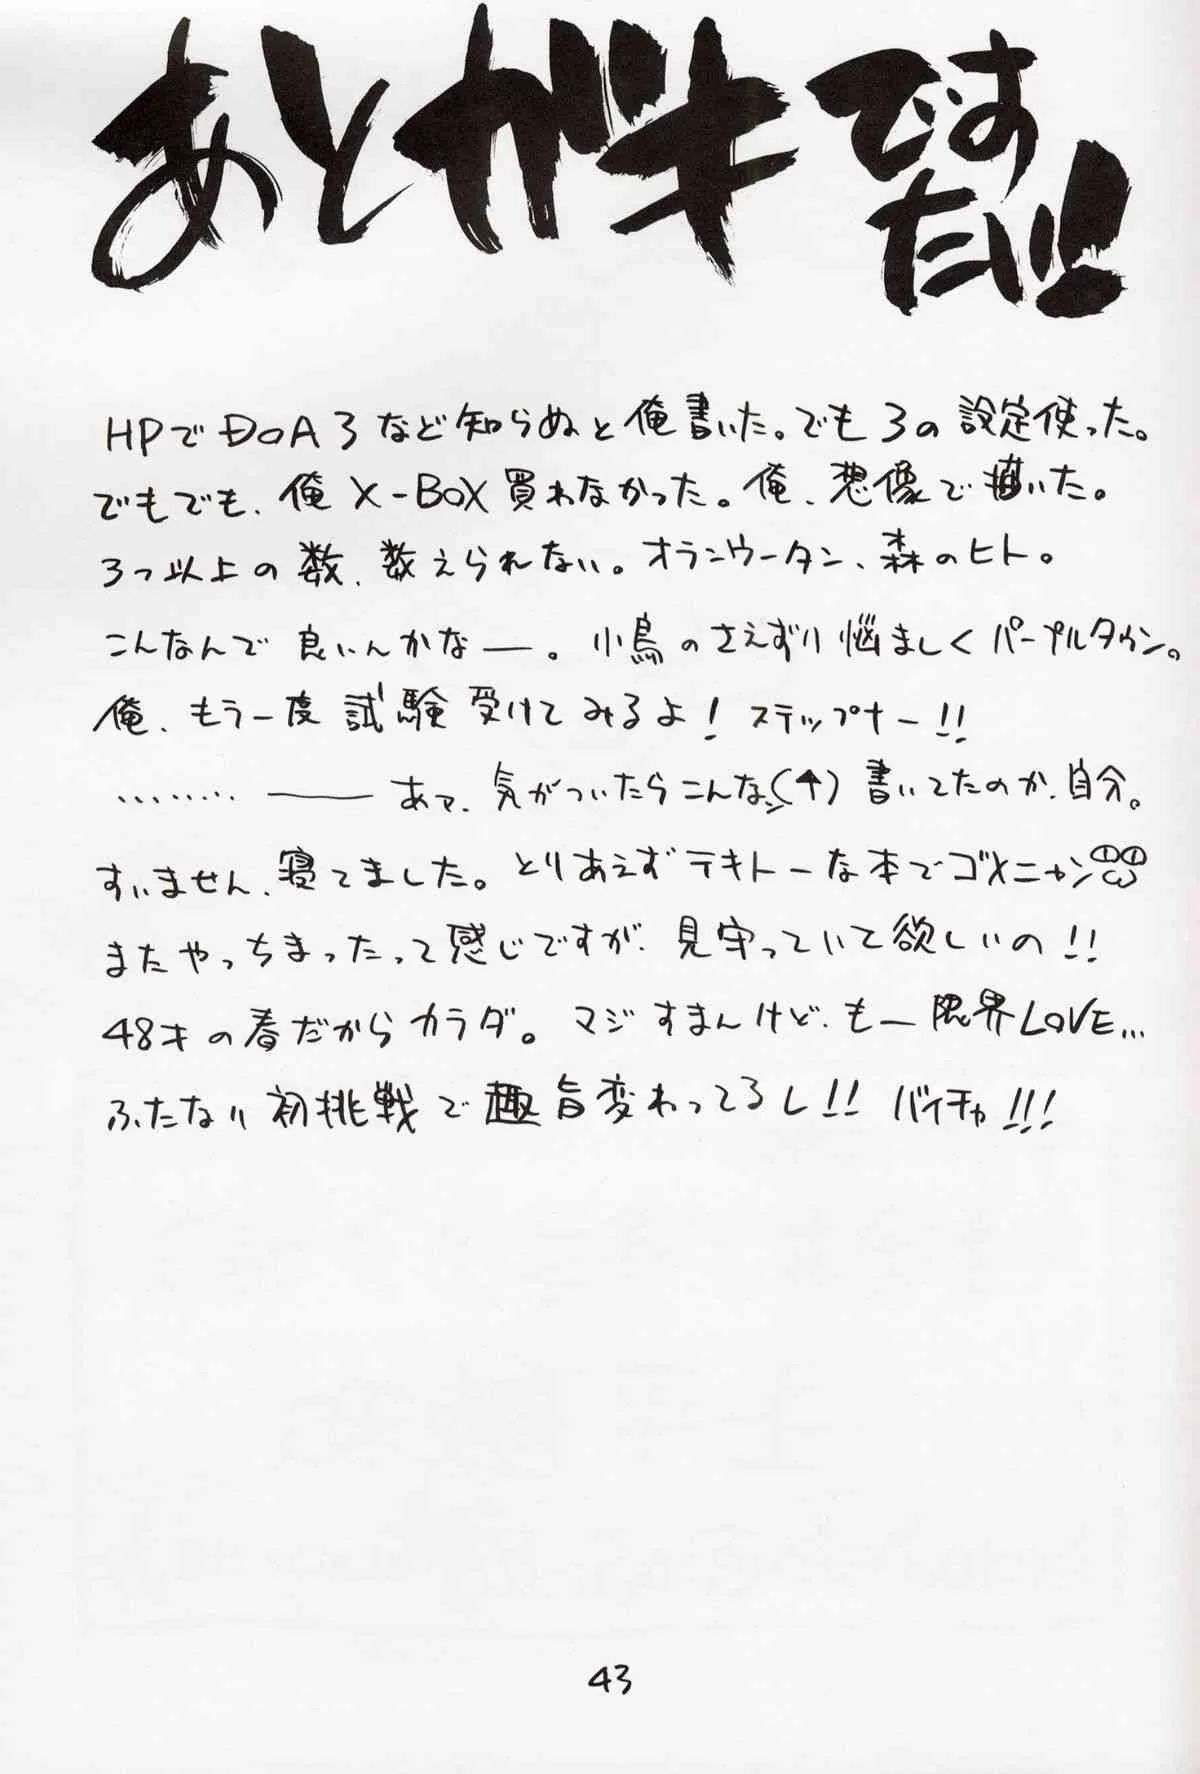 あとがきです
たい!!
HPでDOA3など知らぬと俺書いた。でも3の設定使った。
でもでも、俺X-BOX買わなかった。俺、想像で描いた。
3つ以上の数、数えられない。オランウータン、森のヒト。
こんなんで良いんかなー。小鳥のさえずり悩ましくパープルタウン。
俺、もう一度試験受けてみるよ!ステップナー!!
‥‥‥‥ ―― あっ、気がついたらこんな(↑)書いてたのか、自分。
すいません、寝てました。とりあえずテキトーな本でゴメニャン
またやっちまったって感じですが、見守っていて欲しいの!!
48才の春だからカラダ。マジすまんけど、もー限界LOVE…
ふたなり初挑戦で趣旨変わってるし!!バイチャ!!!
43